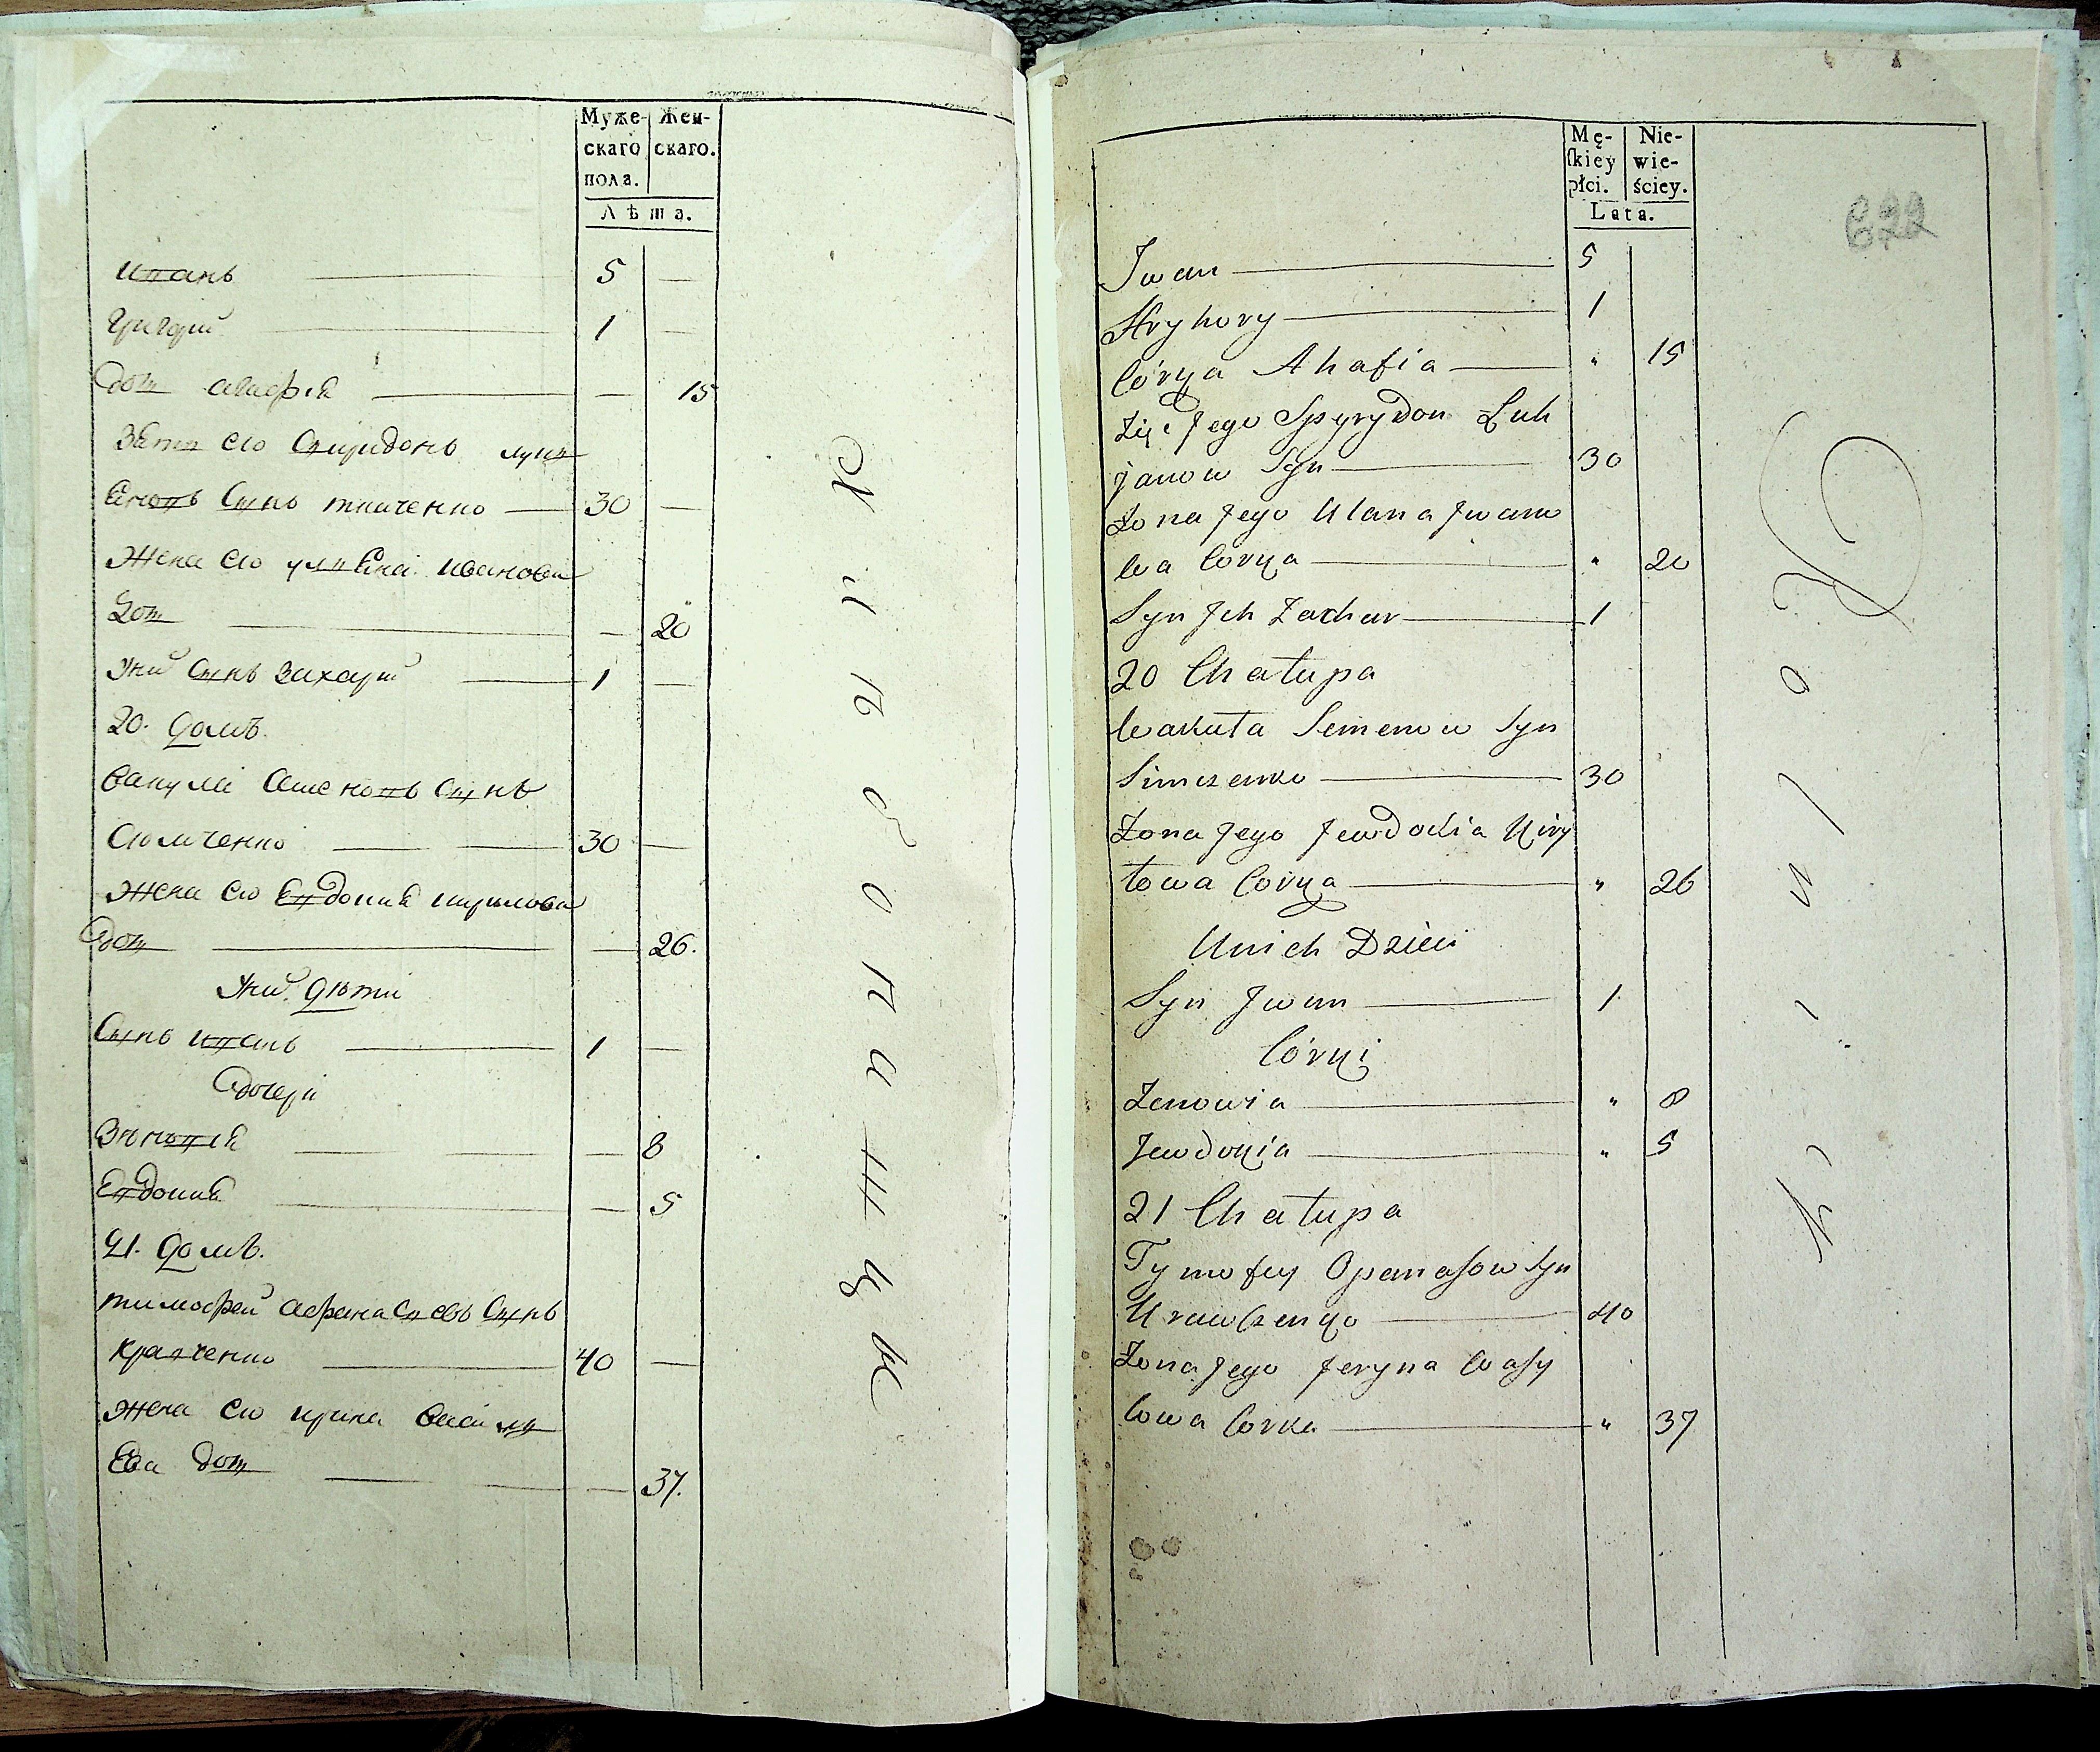 Муже-
скаго
пола.
Жен-
скаго.
Лѣта.
иванъ — 5 —
григорій — 1 —
дочь агафія — — 15
Зять его Спиридонъ лукя
яновъ Сынъ ткаченко — 30 —
жена его улияна иванова
дочь — — 20
у нихъ Сынъ захарій — 1 —
20. домъ.
вакула Семеновъ Сынъ
Сюмченко — 30 —
жена его Евдокия кирилова
дочь — — 26.
у нихъ дѣти
Сынъ иванъ — 1 —
дочери
Зѣновия — — 8
Евдокия — — 5
21. домъ.
тимофей афанасьевъ Сынъ
кравченко — 40 —
жена его ирина василь
Ева дочь — — 37.
Mę-
skiey
płci.
Nie-
wie-
ściey.
Lata.
622
Jwan — 5
Hryhory — 1
Córka Ahafia — " 15
Zięć Jego Spyrydon Luk
janow Syn — 30
Żona Jego Ulana Jwano
wa Corka — " 20
Syn Jch Zachar — 1
20 Chałupa
Wakuła Semenow Syn
Simczenko — 30
Żona Jego Jewdokia Kiry
łowa Corka — " 26
U nich Dzieci
Syn Jwan — 1
Córki
Zenowia — " 8
Jewdokia — " 5
21 Chałupa
Tymofey Opanasow Syn
Krawczenko — 40
Żona Jego Jeryna Wasy
lowa Corka — " 37